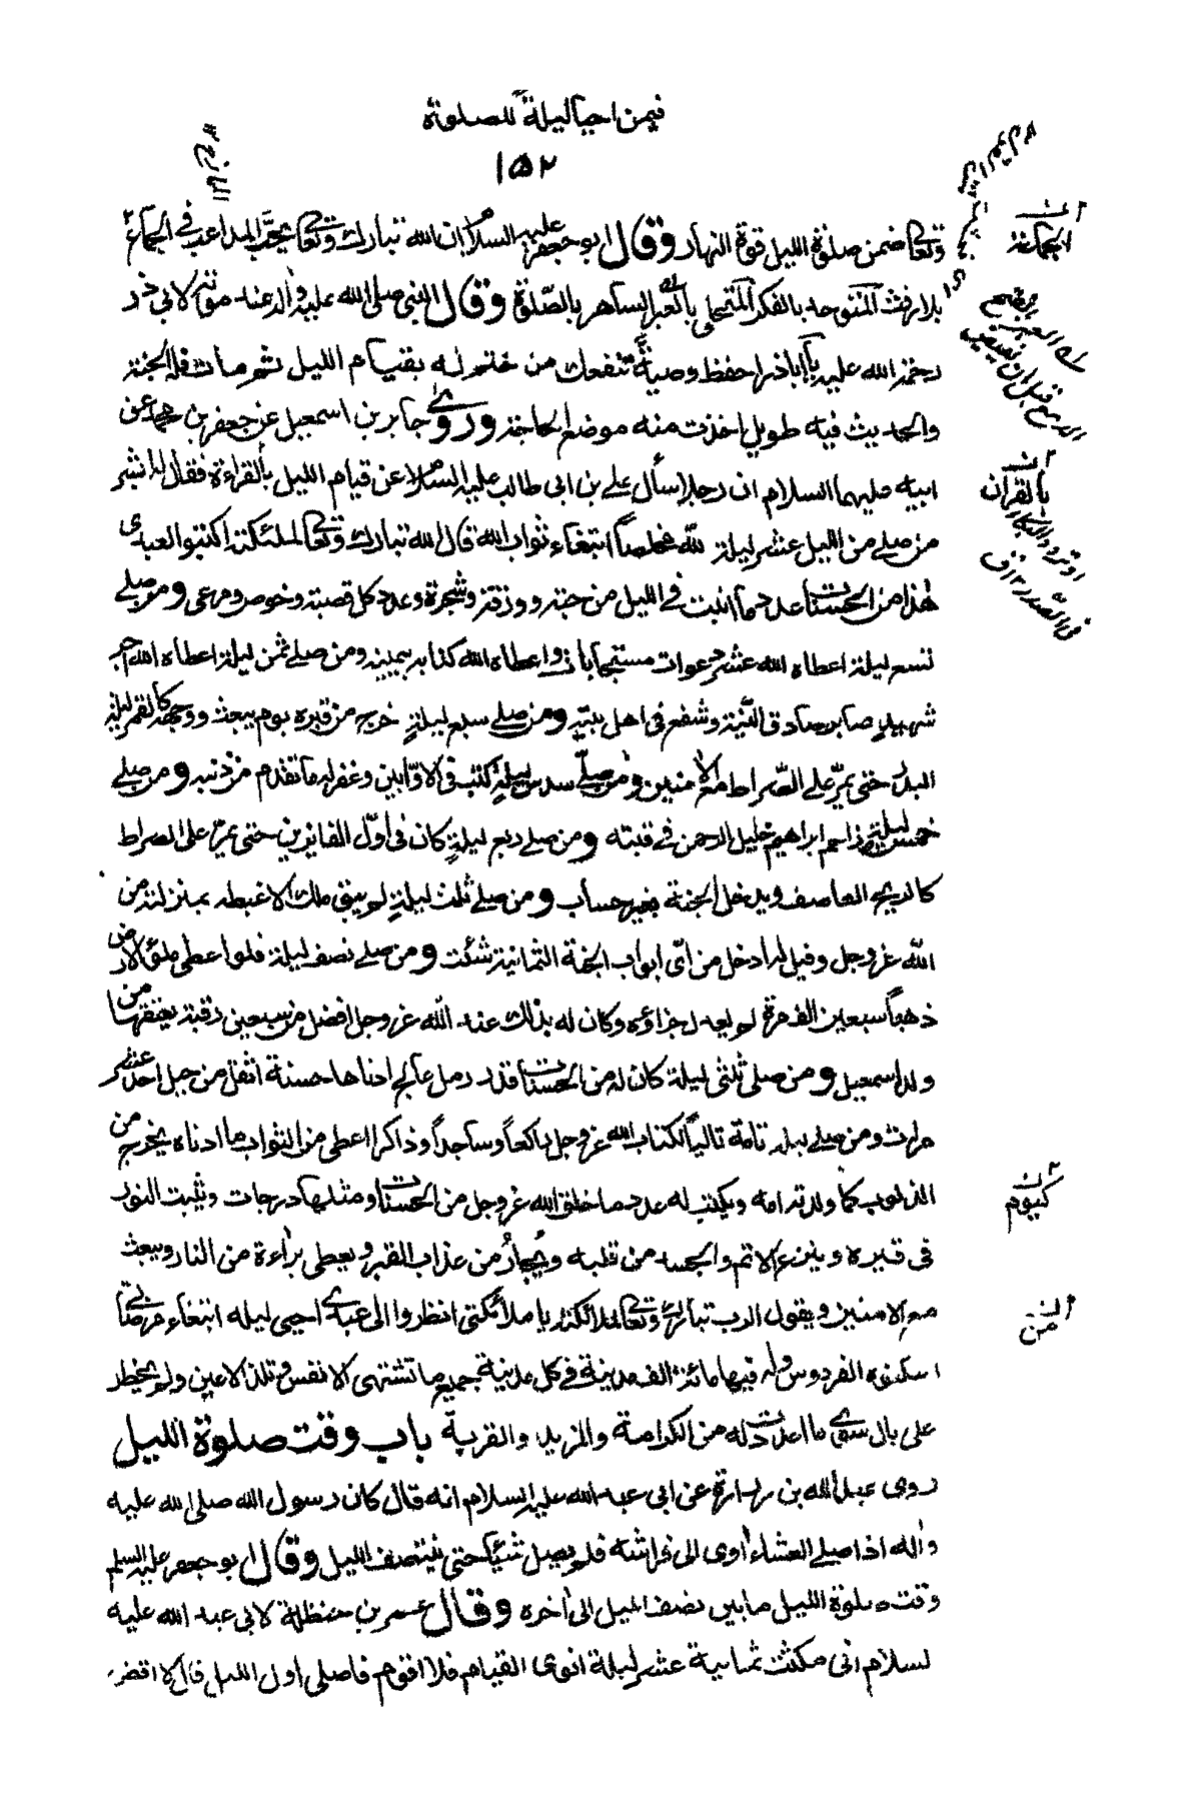 فيمن احيا ليلة للصلوة
١٥٢
وتعالى ضمن صلوة الليل قوة النهار وقال ابو جعفر عليه السلام ان الله تبارك وتعالى يحب المداعب في الجماع
بلا رفث المتوحد بالفكر المتحلى بالعبر الساهر بالصلوة وقال النبي صلى الله عليه واله عند موته لابي ذر
رحمة الله عليه يا اباذر احفظ وصية نبيك تنفعك من ختم له بقيام الليل ثم مات فله الجنة
والحديث فيه طويل اخذت منه موضع الحاجة وروى جابر بن اسمعيل عن جعفر بن محمد عن
ابيه عليهما السلام ان رجلا سأل علي بن ابي طالب عليه السلام عن قيام الليل بالقراءة فقال له ابشر
من صلى من الليل عشر ليلة لله مخلصاً ابتغاء ثواب الله قال الله تبارك وتعالى لملئكته اكتبوا لعبدى
هذا من الحسنات عدد ما انبت في الليل من حبة وورقة وشجرة وعدد كل قصبة وخوص ومرعى ومن صلى
تسع ليلة اعطاه الله عشر دعوات مستجابات واعطاه الله كتابه بيمينه ومن صلى ثمن ليلة اعطاه الله اجر
شهيد صابر صادق النية وشفع في اهل بيته ومن صلى سبع ليلةٍ خرج من قبره يوم يبعث ووجهه كالقمر ليلة
البدر حتى يمر على الصراط مع الامنين ومن صلى سدس ليلة كتب في الاوابين وغفر له ما تقدم من ذنبه ومن صلى
خمس ليلة زاحم ابراهيم خليل الرحمن في قبته ومن صلى ربع ليلةٍ كان في اول الفايزين حتى يمر على الصراط
كالريح العاصف ويدخل الجنة بغير حساب ومن صلى ثلث ليلةٍ لم يبق ملك الا غبطه بمنزلته من
الله عز وجل وقيل له ادخل من اى ابواب الجنة الثمانية شئت ومن صلى نصف ليلة فلو اعطى ملؤ الارض
ذهباً سبعين الف مرة لم يعدل جزاؤه وكان له بذلك عند الله عز وجل افضل من سبعين رقبة يعتقها من
ولد اسمعيل ومن صلى ثلثى ليلة كان له من الحسنات قدر رمل عالج ادناها حسنة اثقل من جبل احد عشر
مرات ومن صلى ليلة تامة تالياً لكتاب الله عز وجل راكعاً وساجداً وذاكرا اعطى من الثواب ما ادناه يخرج من
الذنوب كما ولدته امه ويكتب له عدد ما خلق الله عز وجل من الحسنات ومثلها درجات ويثبت النور
في قبره وينزع الاثم والحسد من قلبه ويُجارُ من عذاب القبر ويعطى براءة من النار ويبعث
مع الامنين ويقول الرب تبارك وتعالى لملائكته يا ملائكتى انظروا الى عبدى احيى ليله ابتغاء مرضاتى
اسكنوه الفردوس وله فيها مائة الف مدينة في كل مدينة جميع ما تشتهى الانفس وتلذ الاعين ولم يخطر
على بال سوى ما اعددت له من الكرامة والمزيد والقربة باب وقت صلوة الليل
روى عبد الله بن زرارة عن ابى عبد الله عليه السلام انه قال كان رسول الله صلى الله عليه
واله اذا صلى العشاء اوى الى فراشه فلم يصل شيئا حتى ينتصف الليل وقال ابو جعفر عليه السلم
وقت صلوة الليل ما بين نصف الليل الى اخره وقال عمر بن حنظلة لابى عبد الله عليه
لسلام انى مكثت ثمانية عشر ليلة انوى القيام فلا اقوم فاصلى اول الليل قال لا اقض
الجماعة
بالقران
كيوم
من